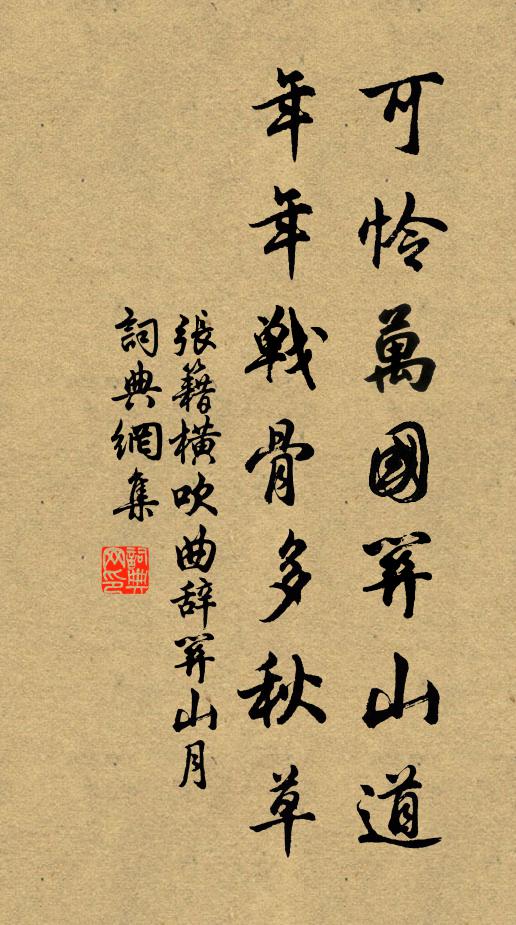 可怜萬國関山道
年年戦骨多秋草
張籍橫吹曲辞関山月
詞典網集
詞典網印